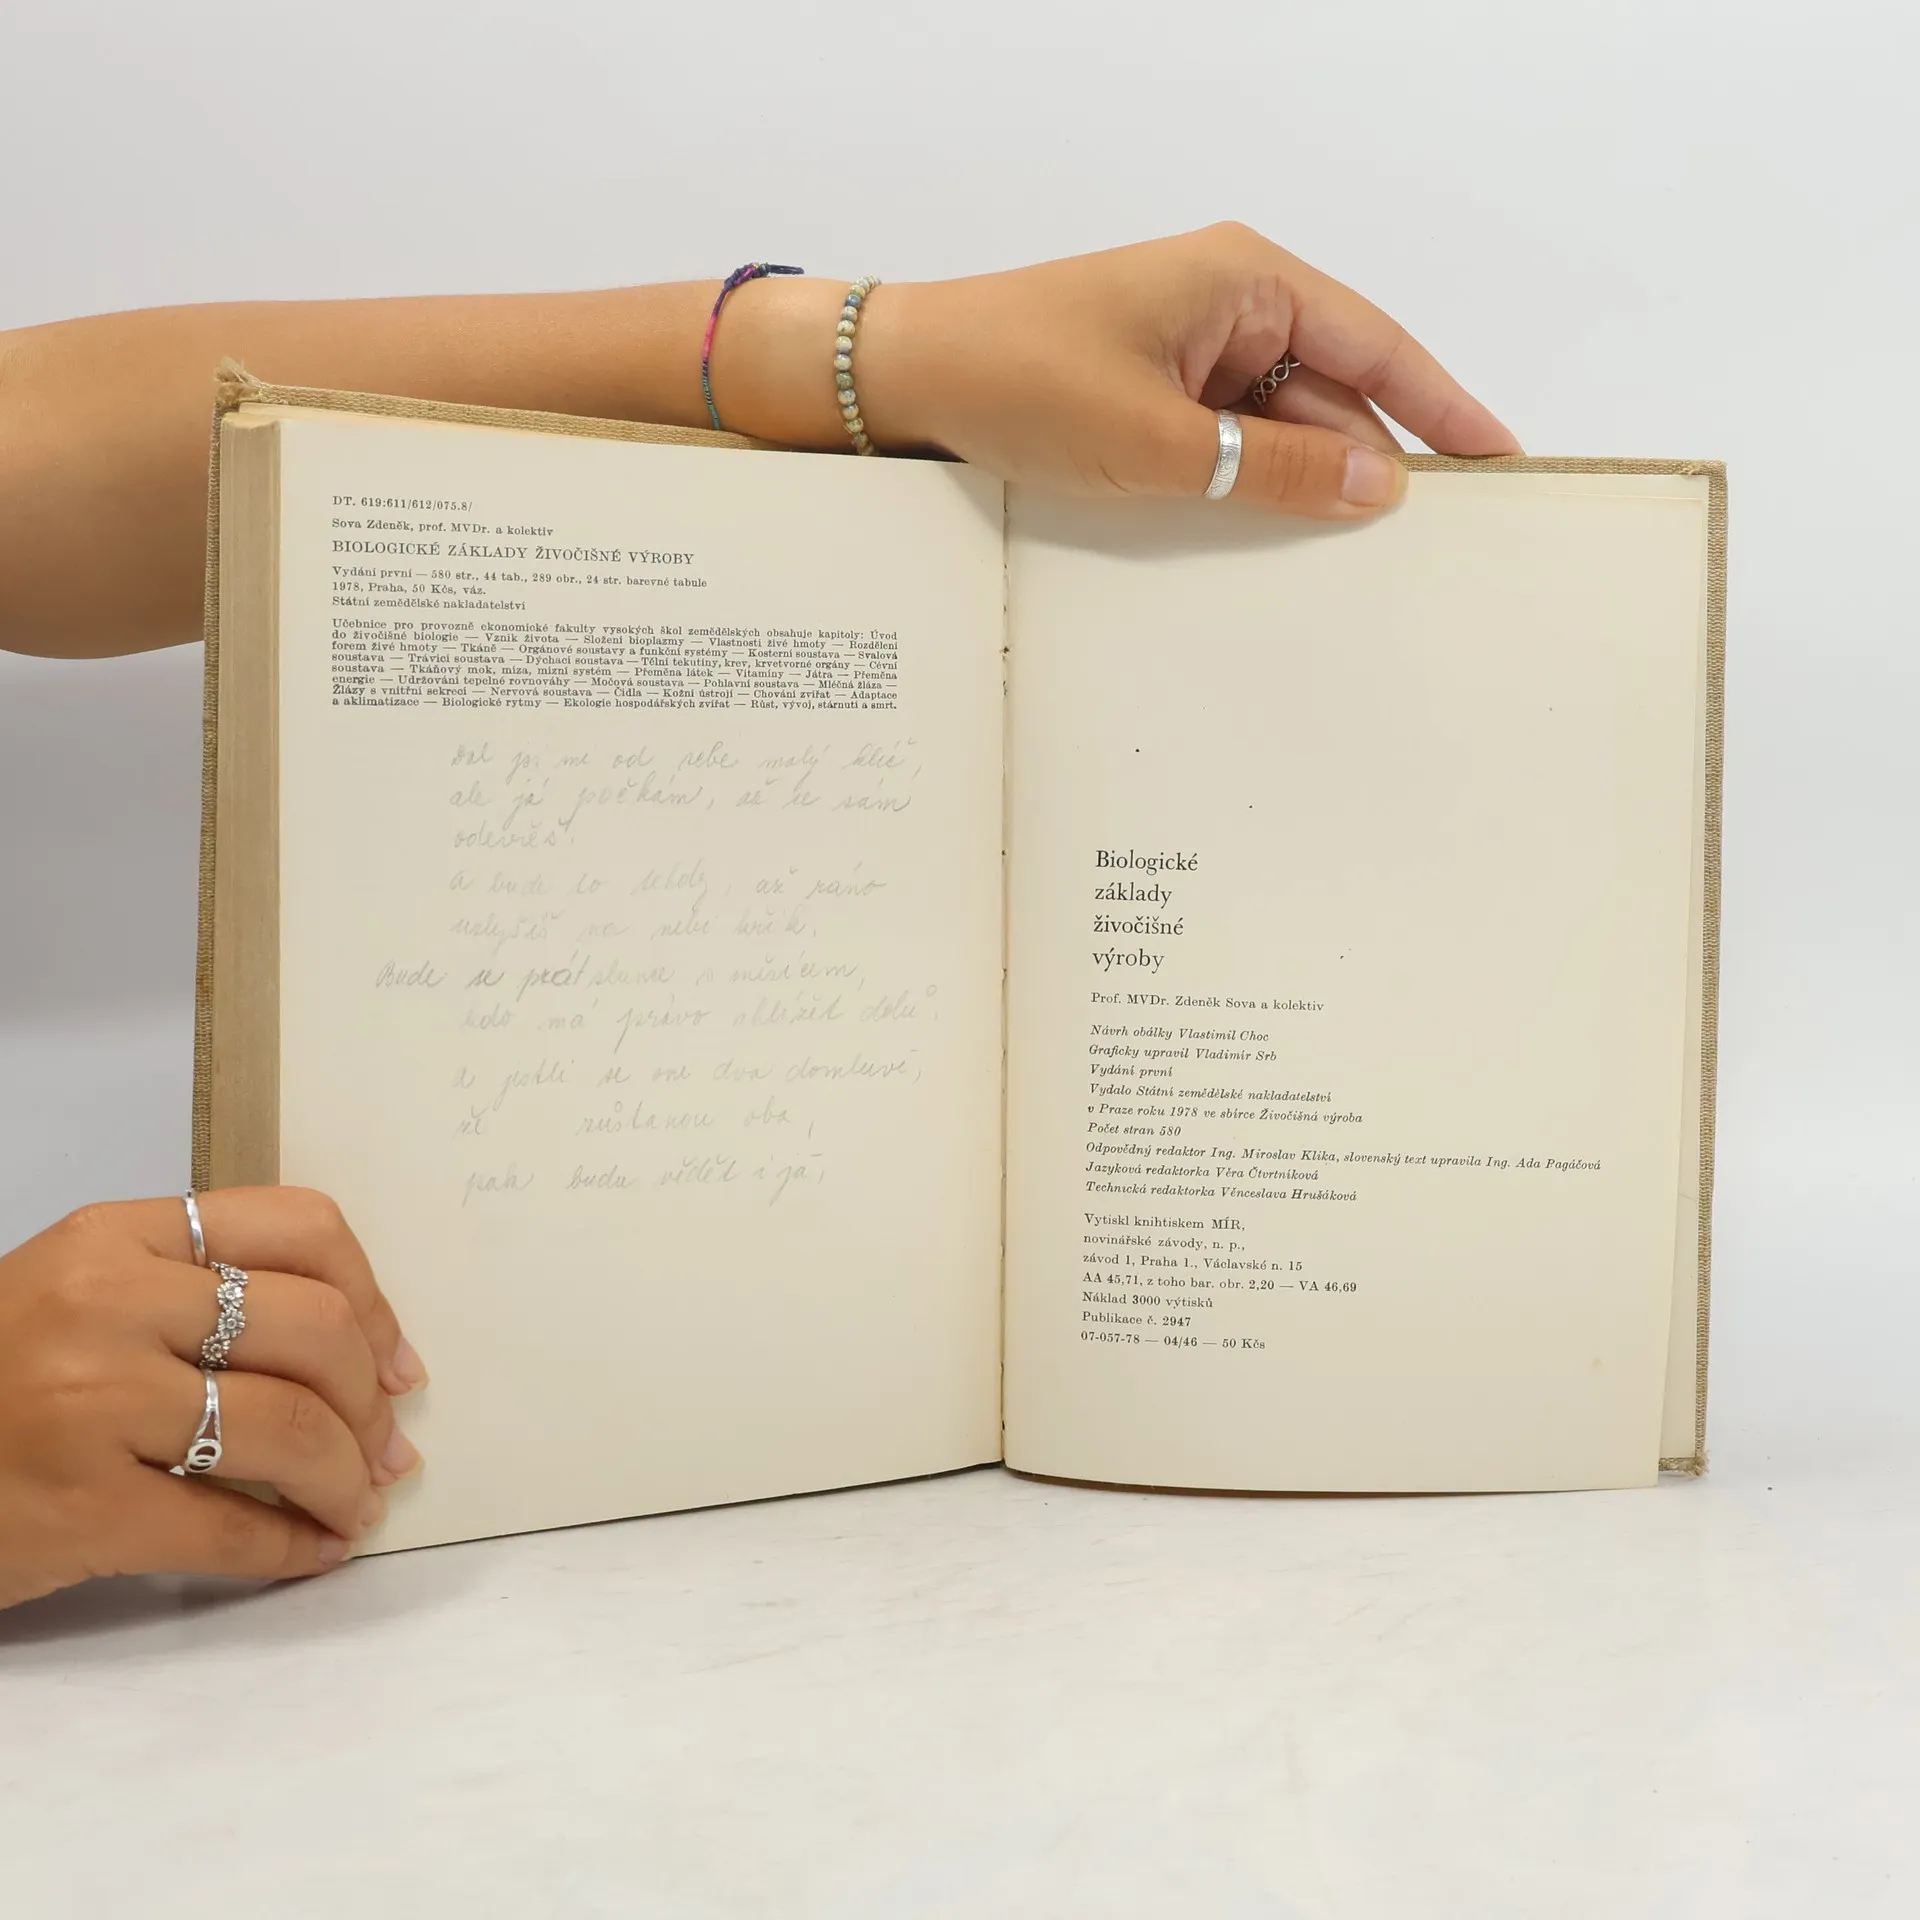 DT. 619:611/612/075.8/
Sova Zdeněk, prof. MVDr. a kolektiv
BIOLOGICKÉ ZÁKLADY ŽIVOČIŠNÉ VÝROBY
Vydání první — 580 str., 44 tab., 289 obr., 24 str. barevné tabule
1978, Praha, 50 Kčs, váz.
Státní zemědělské nakladatelství
Učebnice pro provozně ekonomické fakulty vysokých škol zemědělských obsahuje kapitoly: Úvod
do živočišné biologie — Vznik života — Složení bioplazmy — Vlastnosti živé hmoty — Rozdělení
forem živé hmoty — Tkáně — Orgánové soustavy a funkční systémy — Kosterní soustava — Svalová
soustava — Trávicí soustava — Dýchací soustava — Tělní tekutiny, krev, krvetvorné orgány — Cévní
soustava — Tkáňový mok, míza, mízní systém — Přeměna látek — Vitamíny — Játra — Přeměna
energie — Udržování tepelné rovnováhy — Močová soustava — Pohlavní soustava — Mléčná žláza —
Žlázy s vnitřní sekrecí — Nervová soustava — Čidla — Kožní ústrojí — Chování zvířat — Adaptace
a aklimatizace — Biologické rytmy — Ekologie hospodářských zvířat — Růst, vývoj, stárnutí a smrt.
Dal jsi mi od sebe malý klíč,
ale já počkám, až se sám
odevřeš.
A bude to tehdy, až ráno
uslyšíš na nebi křik.
Bude se prát slunce s měsícem,
kdo má právo shlížet dolů.
A jestli se oni dva domluví,
že zůstanou oba,
pak budu vědět i já,
Biologické
základy
živočišné
výroby
Prof. MVDr. Zdeněk Sova a kolektiv
Návrh obálky Vlastimil Choc
Graficky upravil Vladimír Srb
Vydání první
Vydalo Státní zemědělské nakladatelství
v Praze roku 1978 ve sbírce Živočišná výroba
Počet stran 580
Odpovědný redaktor Ing. Miroslav Klika, slovenský text upravila Ing. Ada Pagáčová
Jazyková redaktorka Věra Čtvrtníková
Technická redaktorka Věnceslava Hrušáková
Vytiskl knihtiskem MÍR,
novinářské závody, n. p.,
závod 1, Praha 1., Václavské n. 15
AA 45,71, z toho bar. obr. 2,20 — VA 46,69
Náklad 3000 výtisků
Publikace č. 2947
07-057-78 — 04/46 — 50 Kčs